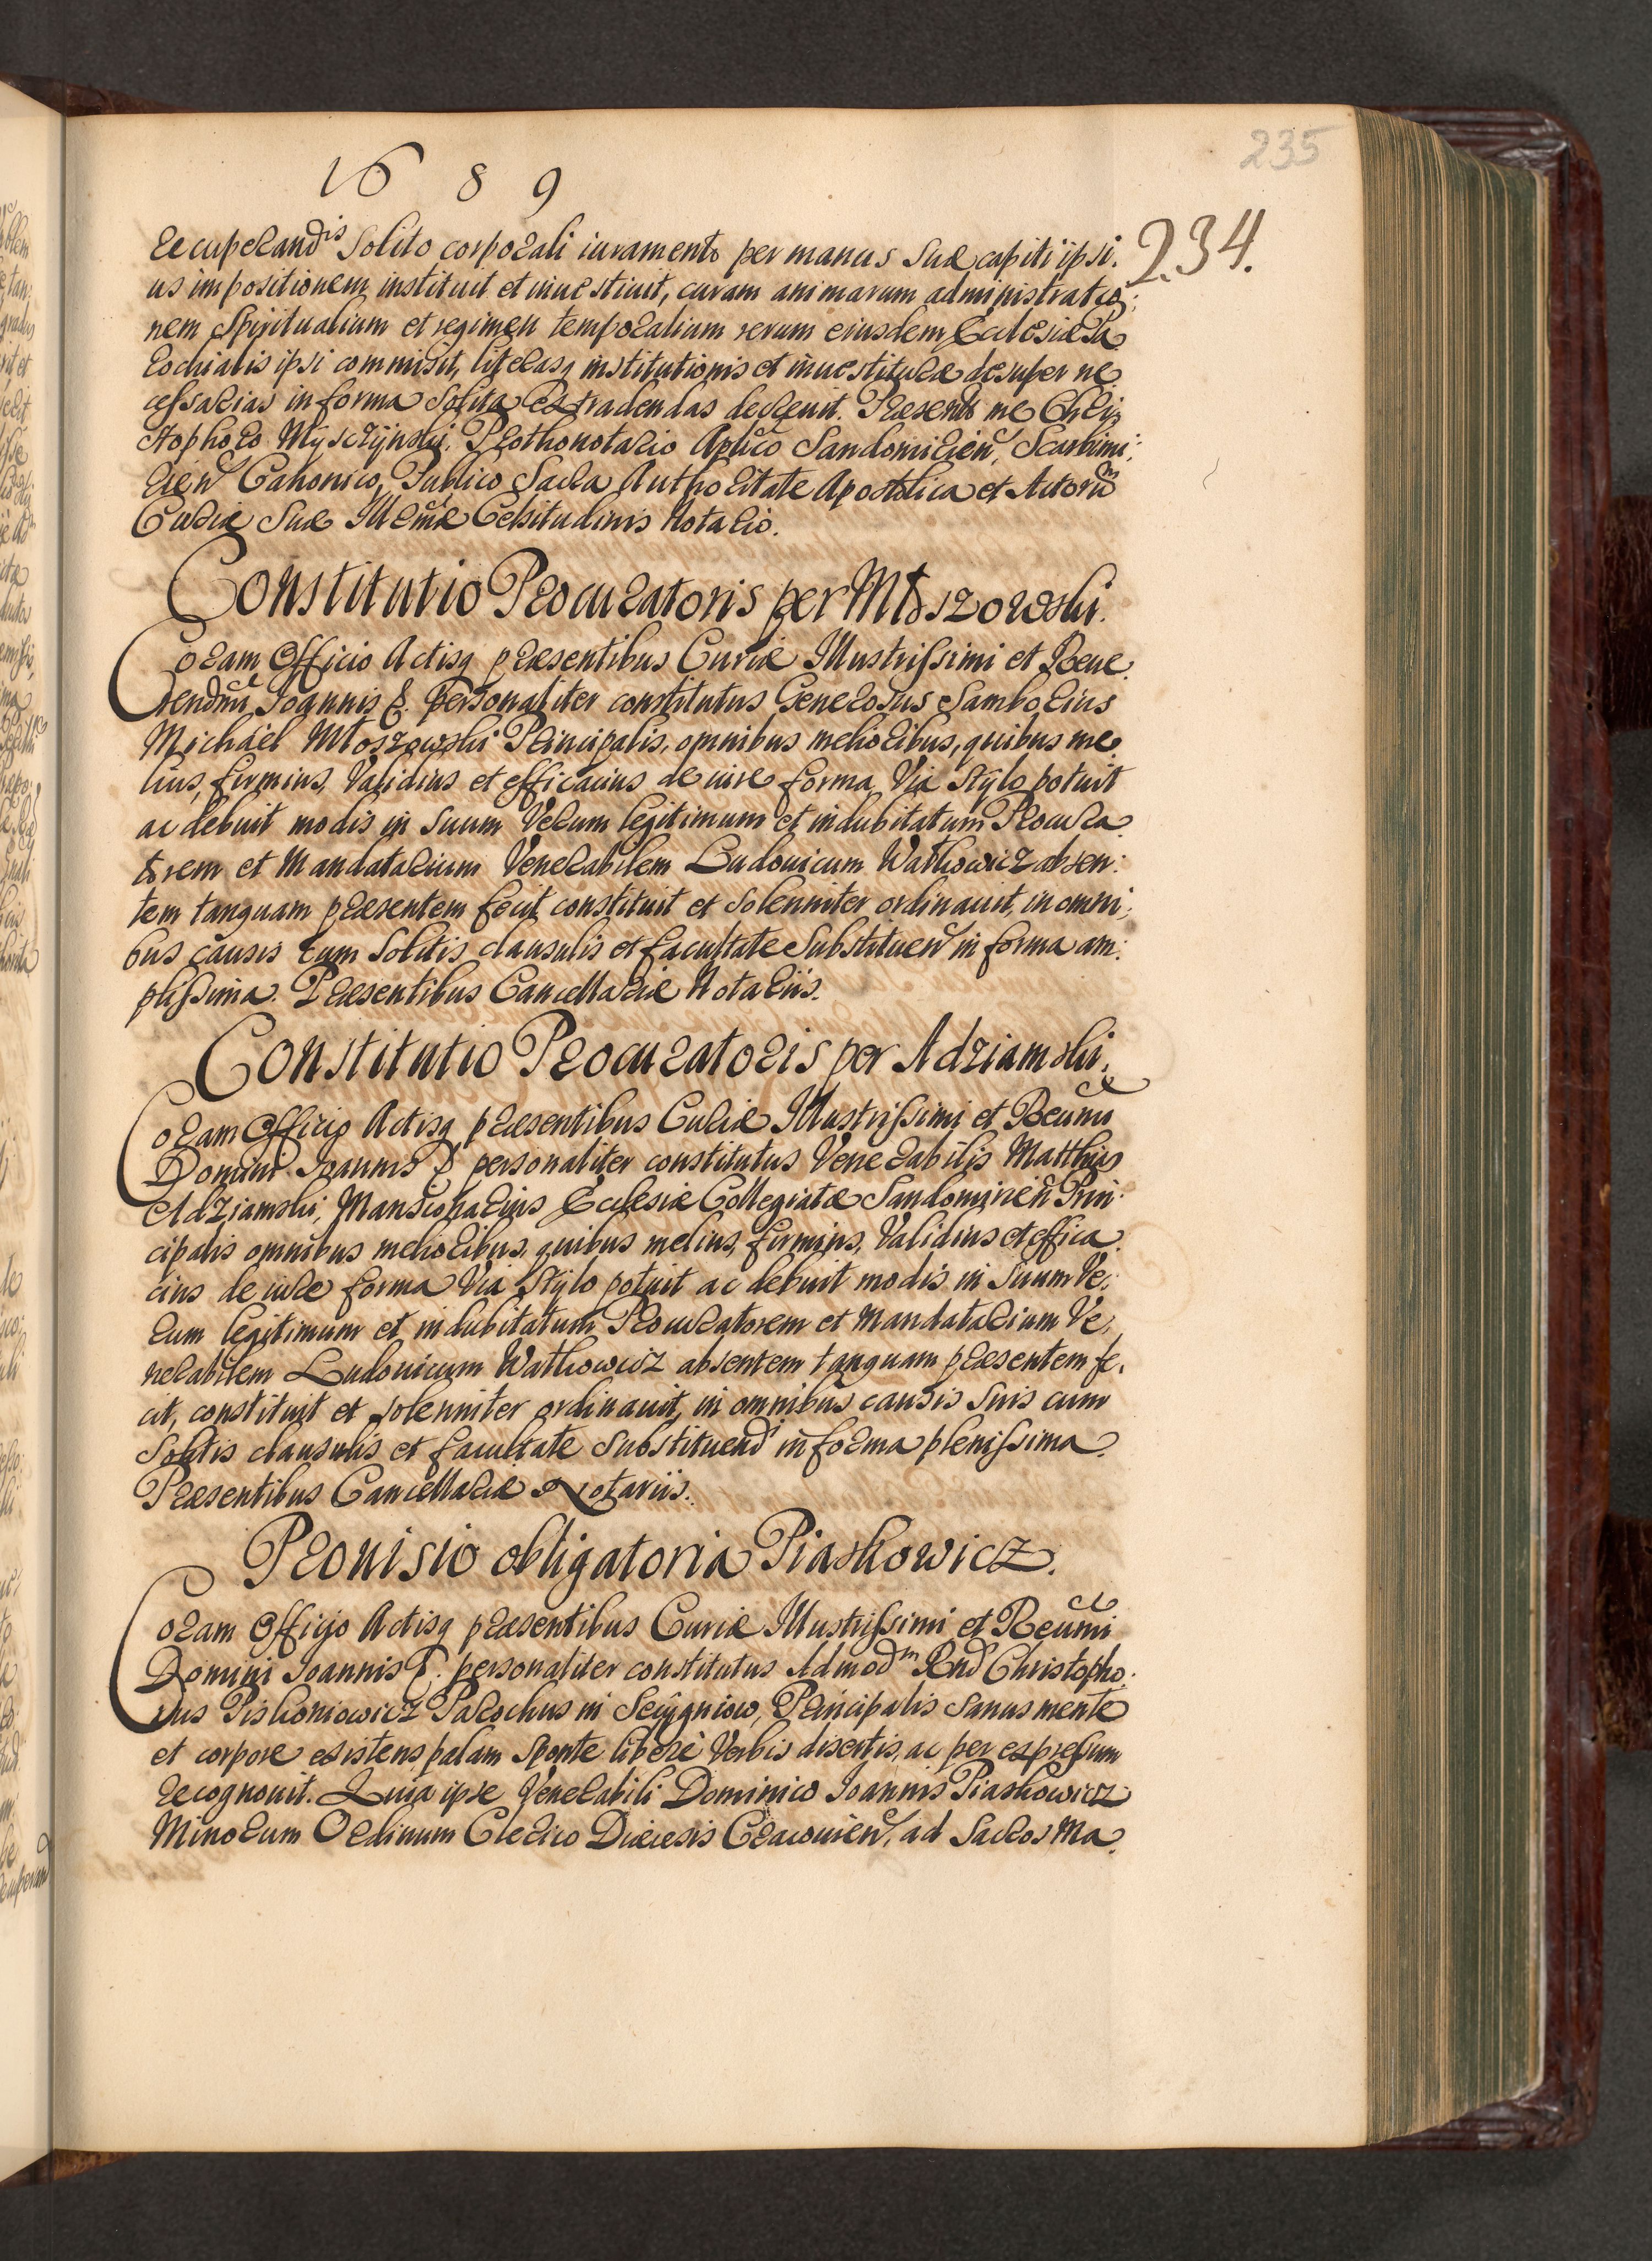 235
1689
234.
recuperandis solito corporali iuramento per manus suae capiti ipsi:
us impositionem instituit et inuestiuit, curam animarum administratio:
nem Spiritualium et regimen temporalium rerum eiusdem Ecclesiae Pa
rochialis ipsi commisit, literasq institutionis et inuestiturae desuper ne
cessarias in forma solita extradendas decreuit. Praesente me Chri:
stophoro Myszczÿnski, Prothonotario Aplico Sandomirien, Scarbimi:
rien Canonico, Publico Sacra Authoritate Apostolica et Actorum
Curiae Suae Illmae Celsitudinis Notario.
Constitutio Procuratoris per Młoszowski.
Coram Officio Actisq praesentibus Curiae Illustrissimi et Reue
rendmi Ioannis &. Personaliter constitutus Generosus Samborius
Michaël Młoszowski Principalis, omnibus melioribus, quibus me
lius, firmius, Validius et efficacius de iure forma Via Stÿlo potuit
ac debuit modis in suum Verum legitimum et indubitatum Procura
torem et Mandatarium Venerabilem Ludouicum Watkowicz absen:
tem tanquam praesentem fecit constituit et solenniter ordinauit, in omni:
bus causis cum solitis clausulis et facultate Substituen in forma am:
plissima. Praesentibus Cancellariae Notariis.
Constitutio Procuratoris per Adziamski.
Coram Officio Actisq praesentibus Curiae Illustrissimi et Reumi
Domini Ioannis & personaliter constitutus Venerabilis Matthias
Adziamski, Mansionarius Ecclesiae Collegiatae Sandomirien Prin:
cipalis omnibus melioribus, quibus melius, firmius, Validius et effica
cius de iure forma Via Stÿlo potuit ac debuit modis in suum Ve:
rum legitimum et indubitatum Procuratorem et Mandatarium Ve:
nerabilem Ludouicum Watkowicz absentem tanquam praesentem fe:
cit, constituit et solenniter ordinauit, in omnibus causis suis cum
solitis clausulis et facultate Substituendi in forma plenissima
Praesentibus Cancellariae Notariis.
Prouisio obligatoria Piaskowicz.
Coram Officio Actisq praesentibus Curiae Illustrissimi et Reumi
Domini Ioannis &. personaliter constitutus Admodm Rnd Christopho
rus Pis Parochus in Principalis sanus mente
et corpore existens palam sponte liberè Verbis disertis, ac per expressum
recognouit. Quia ipse Venerabili Dominico Ioannis Piaskowicz
Minorum Ordinum Clerico Diaecesis Cracouien, ad Sacros Ma